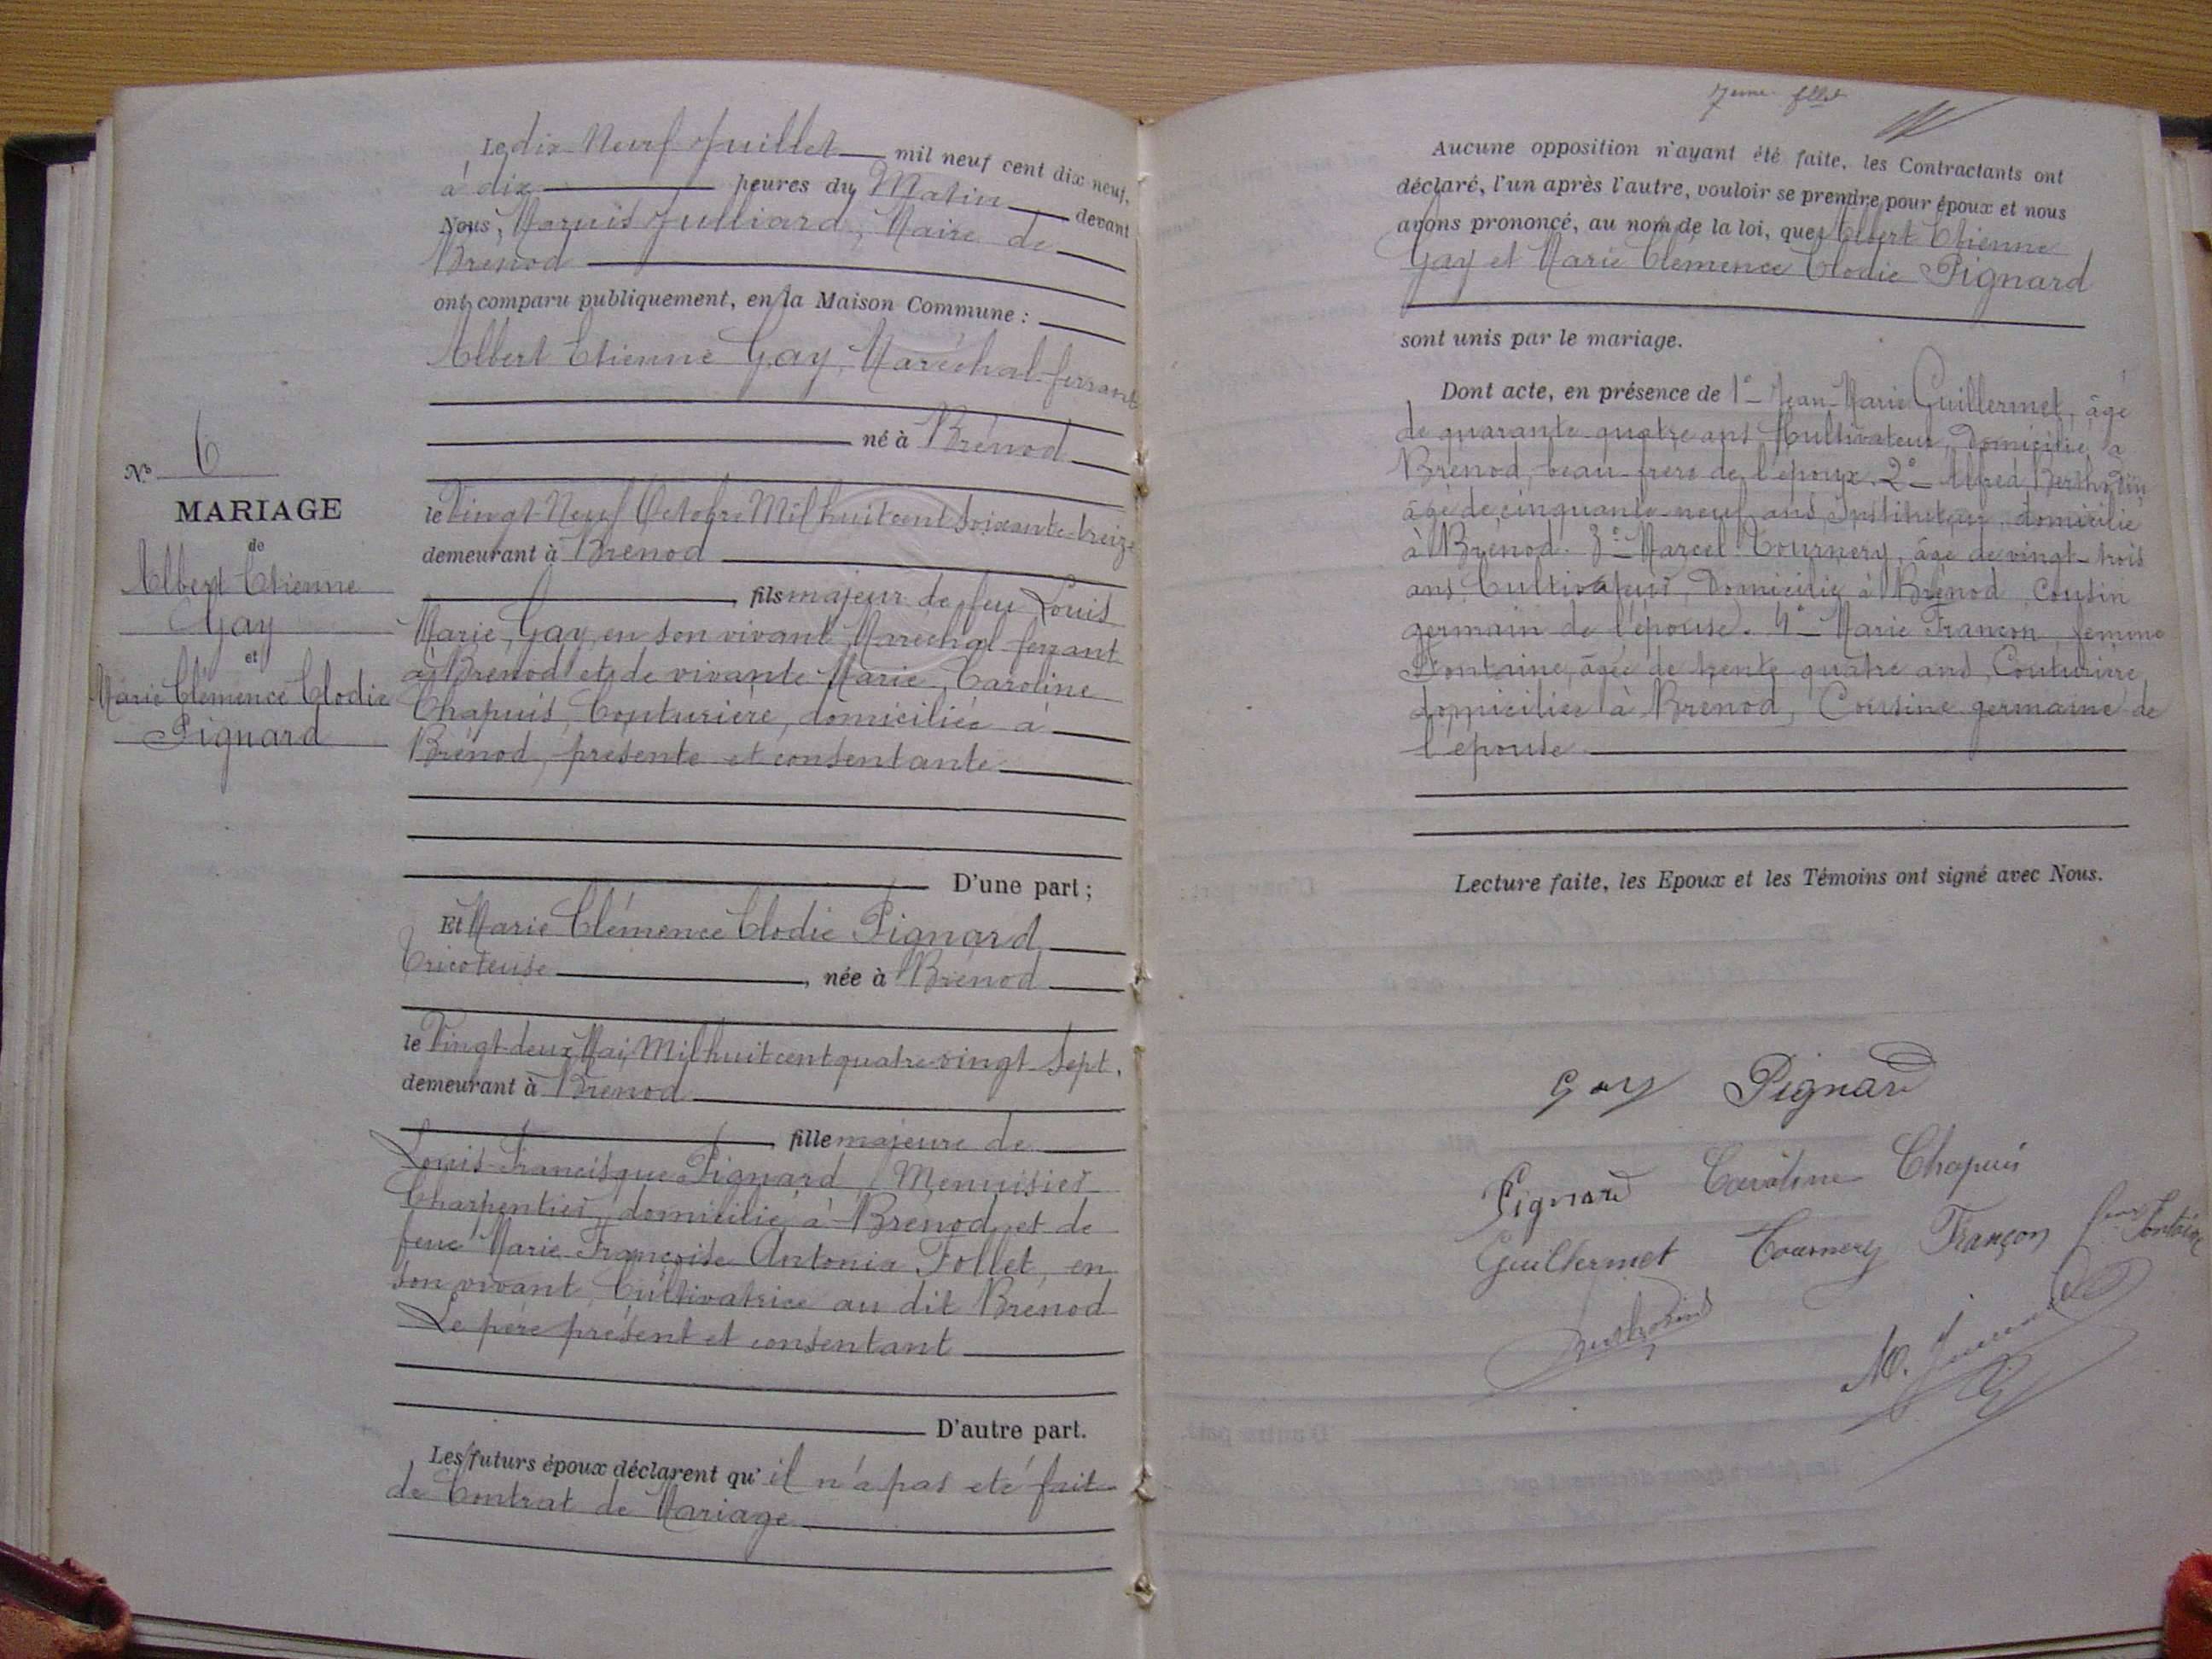 N° 6
MARIAGE
de
Albert Etienne
Gay
et
Marie Clémence Elodie
Pignard
Le dix-Neuf Juillet mil neuf cent dix neuf,
à dix heures du Matin devant
Nous, Marquis Julliard, Maire de
Brénod
ont comparu publiquement, en la Maison Commune :
Albert Etienne Gay, Maréchal-ferrant
né à Brénod
le Vingt-Neuf Octobre Mil huit cent soixante-treize
demeurant à Brénod
fils majeur de feu Louis
Marie, Gay, en son vivant Maréchal ferrant
à Brénod et de vivante Marie, Caroline
Chapuis, Couturière, domiciliée à
Brénod, présente et consentante
D'une part ;
Et Marie Clémence Elodie Pignard,
Tricoteuse, née à Brénod
le Vingt-deux Mai, Mil huit cent quatre-vingt Sept,
demeurant à Brénod
fille majeure de
Louis-Francisque Pignard, Menuisier
Charpentier, domicilié à Brénod, et de
feue Marie Françoise Antonia Follet, en
son vivant, Cultivatrice au dit Brénod
Le père présent et consentant
D'autre part.
Les futurs époux déclarent qu'il n'a pas été fait
de Contrat de Mariage
7eme fllet
Aucune opposition n'ayant été faite, les Contractants ont
déclaré, l'un après l'autre, vouloir se prendre pour époux et nous
avons prononcé, au nom de la loi, que Albert Etienne
Gay et Marie Clémence Elodie Pignard
sont unis par le mariage.
Dont acte, en présence de 1° Jean-Marie Guillermet, âgé
de quarante quatre ans, Cultivateur, Domicilié à
Brénod, beau-frère de l'époux. 2° Alfred Berthodin
âgé de cinquante-neuf ans Instituteur, domicilié
à Brénod. 3° Marcel Tournery, âgé de vingt-trois
ans, Cultivateur, Domicilié à Brénod Cousin
germain de l'épouse. 4° Marie Françon, femme
Fontaine, âgée de trente quatre ans, Couturière,
domiciliée à Brénod, Cousine germaine de
l'épouse
Lecture faite, les Epoux et les Témoins ont signé avec Nous.
Gay Pignard
Pignard Caroline Chapuis
Guillermet Tournery Françon